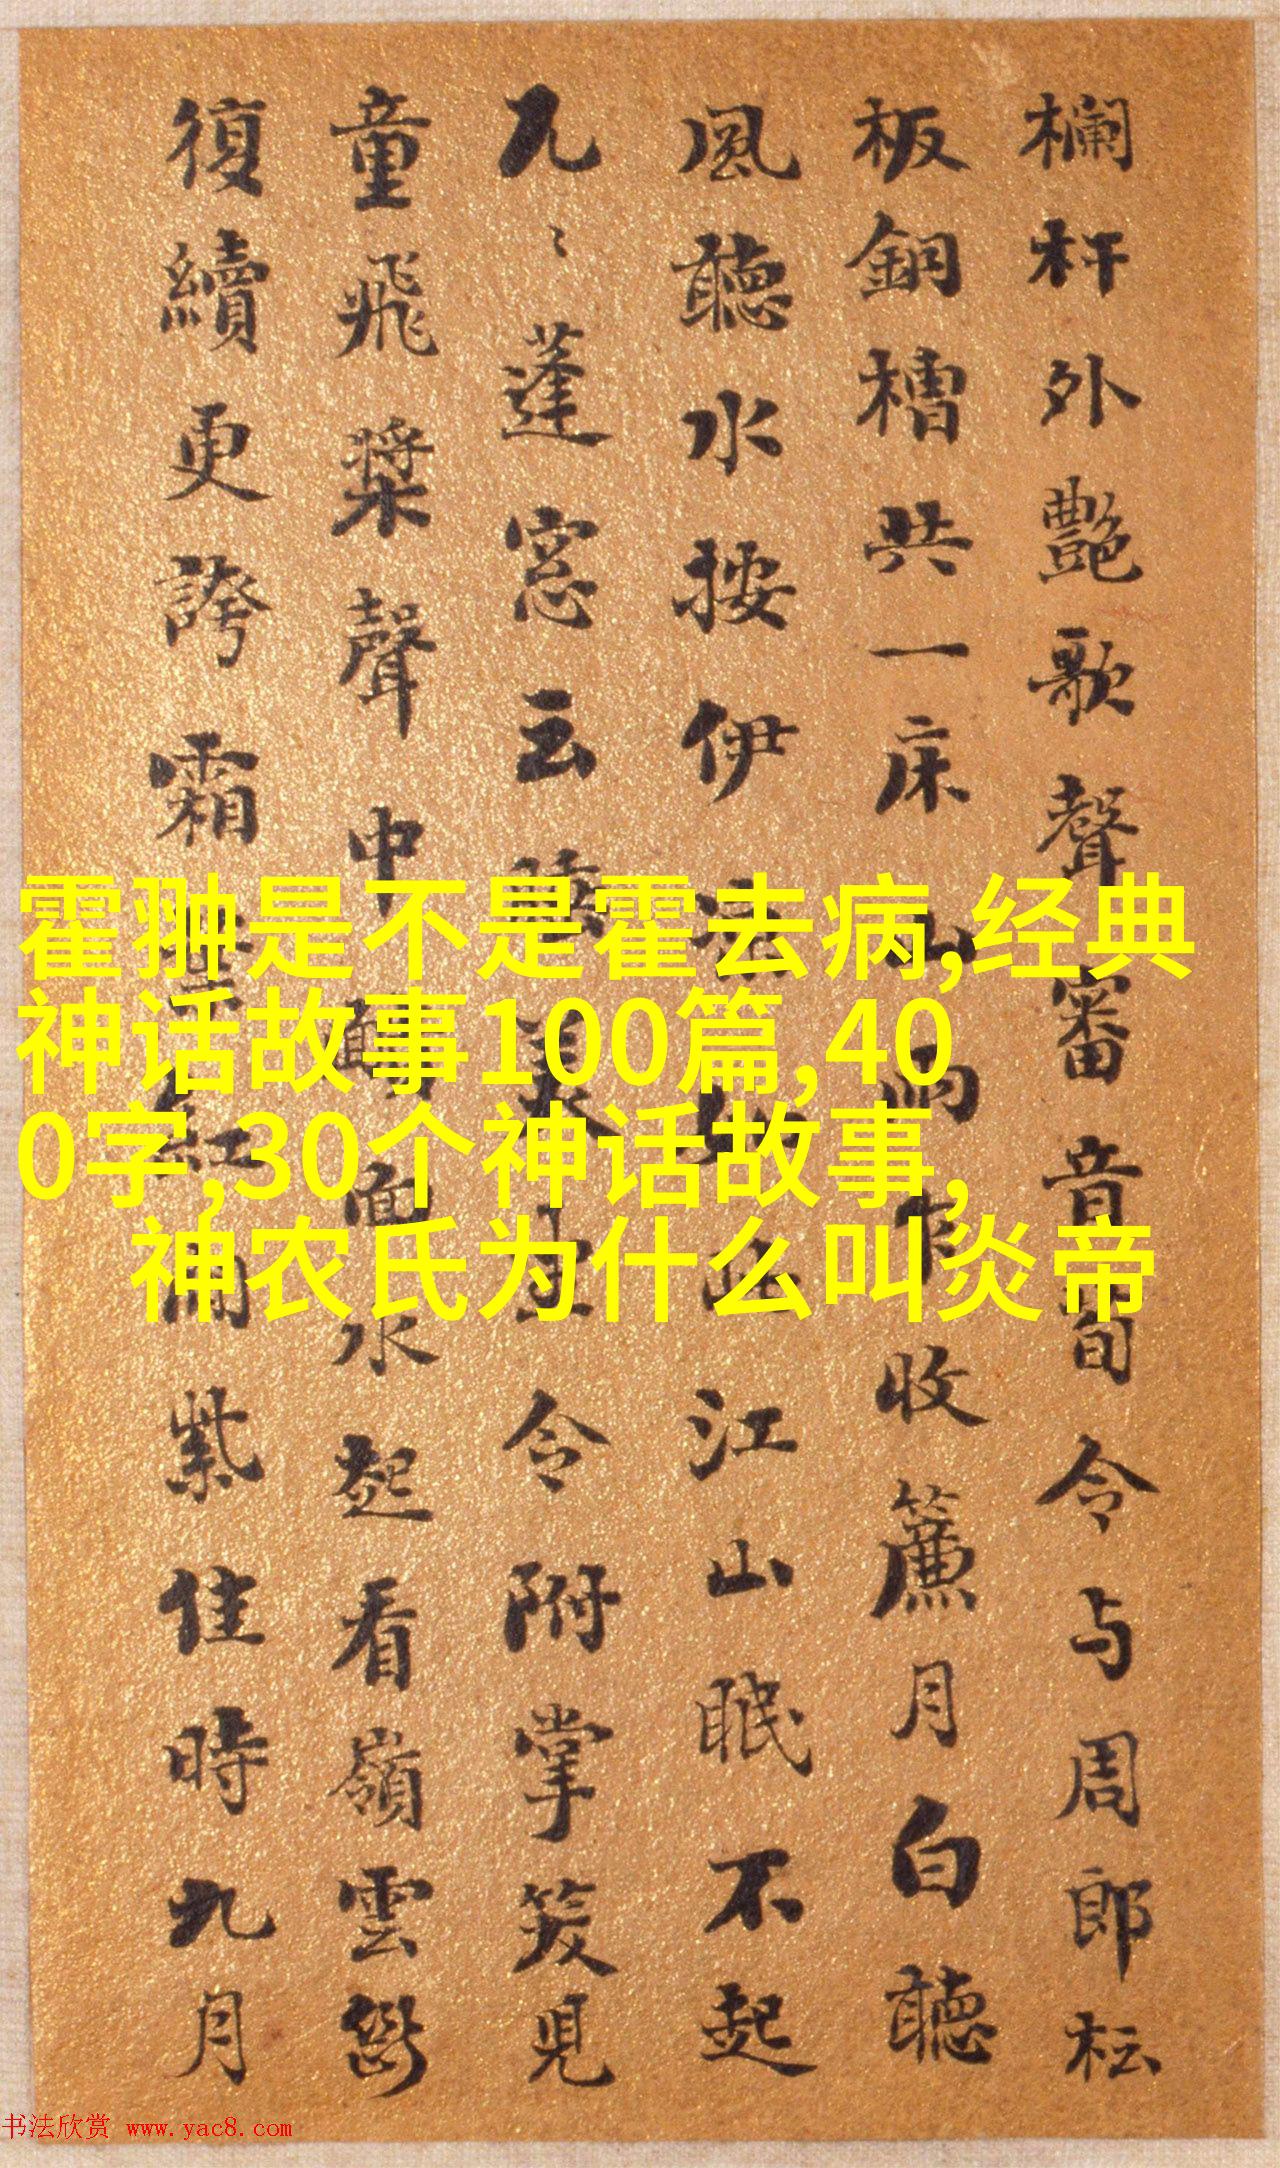 欄杆外艷歌聲審音旬令与周郎枟
板銅槽共一床山雨乍收簾月白聽
風聽水按伊江山眠不起
九〻蓬窓云令附掌笑見
童飛槳聲中面水起看嶺雲
復續更誇霜紅紫佳時九月
霍翀是不是霍去病,经典
神话故事100篇,40
0字,30个神话故事,
神农氏为什么叫炎帝
书法欣赏 www.yac8.com